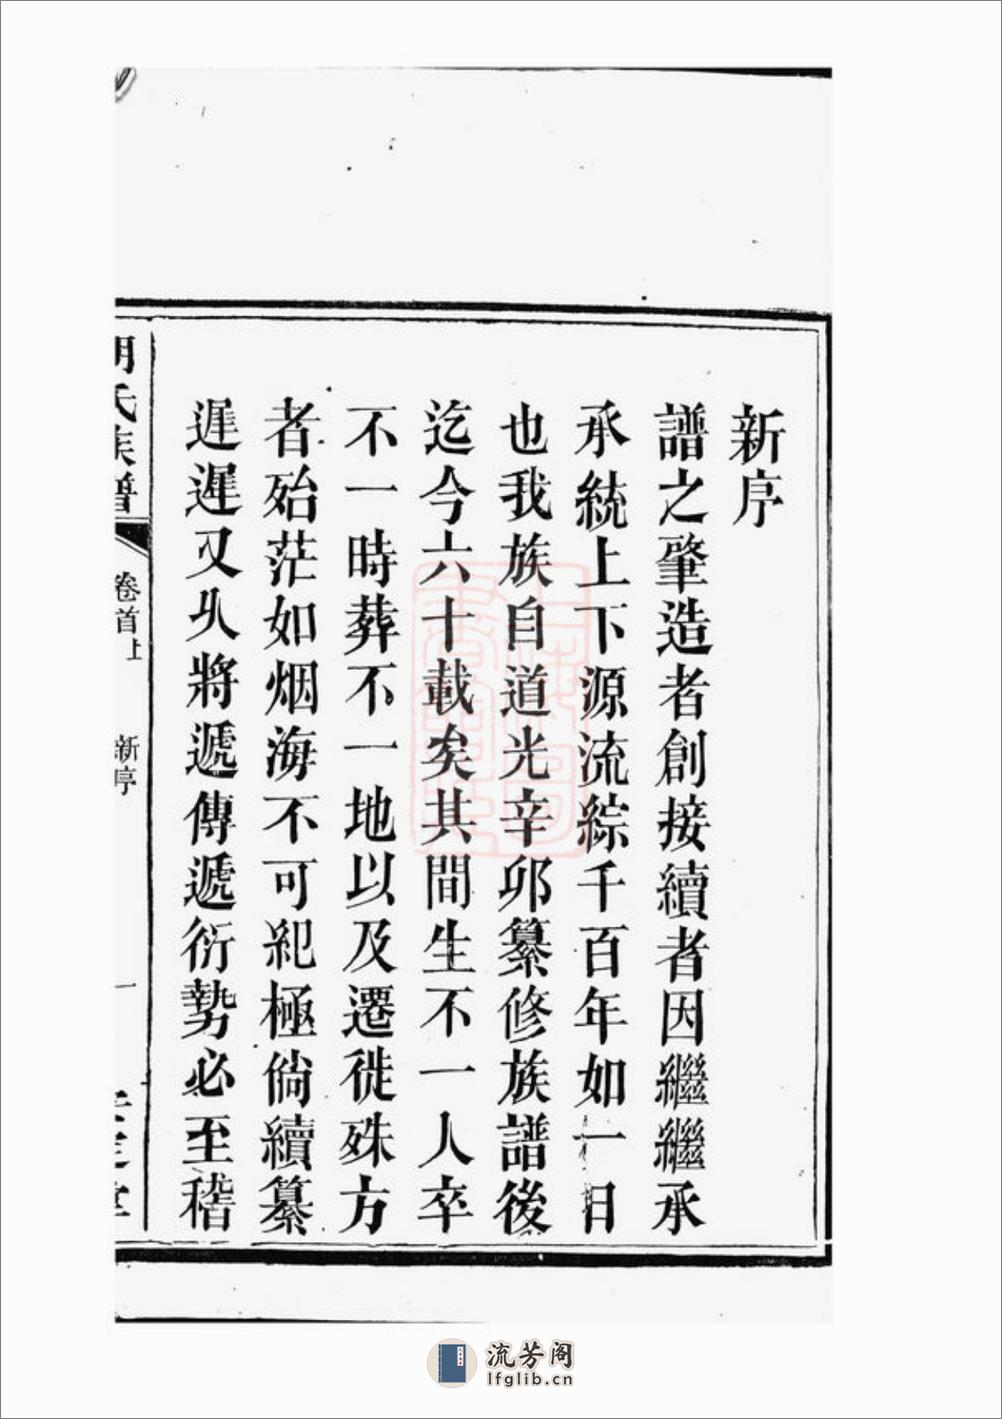 新序
譜之肇造者創接續者因繼繼承
承統上下源流綜千百年如一日
也我族自道光辛卯纂修族譜後
迄今六十載矣其間生不一人卒
不一時葬不一地以及遷徙殊方
者殆茫如烟海不可紀極倘續纂
遲遲又乆將遞傳遞衍勢必至稽
胡氏族譜
卷首上
新序
一
堂
流芳阁
lfglib.cn